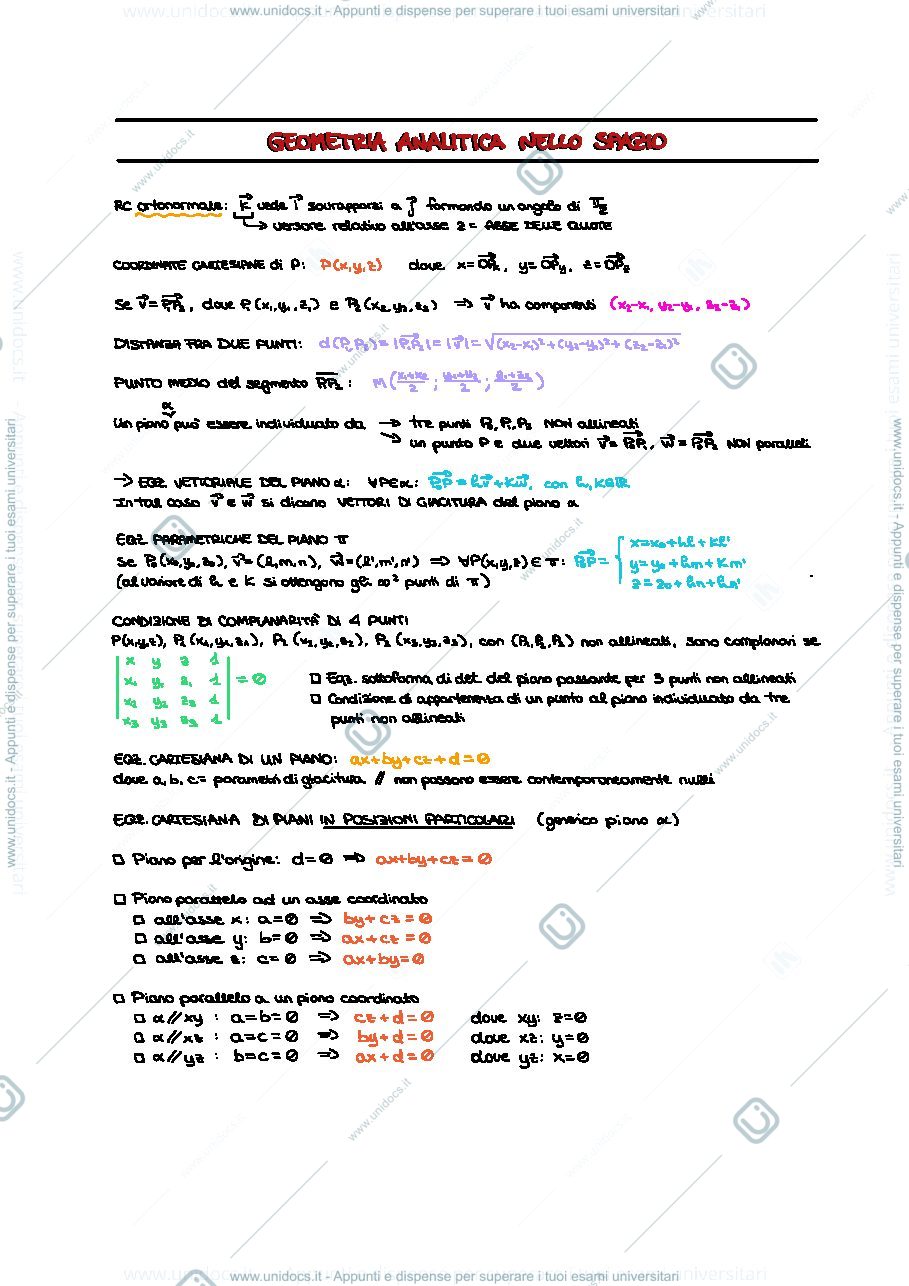 www.unidocs.it - Appunti e dispense per superare i tuoi esami universitari
GEOMETRIA ANALITICA NELLO SPAZIO
RC ortonormale: k⃗ vede i⃗ sovrapporsi a j⃗ formando un angolo di π/2
↳ versore relativo all'asse z = ASSE DELLE QUOTE
COORDINATE CARTESIANE di P: P(x,y,z) dove x=OPₓ, y=OPᵧ, z=OP_z
Se v⃗=P₁P₂, dove P₁(x₁,y₁,z₁) e P₂(x₂,y₂,z₂) ⇒ v⃗ ha componenti (x₂-x₁, y₂-y₁, z₂-z₁)
DISTANZA TRA DUE PUNTI: d(P₁P₂)=|P₁P₂|=|v⃗|=√(x₂-x₁)²+(y₂-y₁)²+(z₂-z₁)²
PUNTO MEDIO del segmento P₁P₂: M((x₁+x₂)/2 ; (y₁+y₂)/2 ; (z₁+z₂)/2)
α
Un piano può essere individuato da → tre punti P₀,P₁,P₂ NON allineati
↘ un punto P e due vettori v⃗=P₀P₁, w⃗=P₀P₂ NON paralleli
→ EQZ. VETTORIALE DEL PIANO α: ∀P∈α: P₀P=hv⃗+kw⃗, con h,k∈ℝ
In tal caso v⃗ e w⃗ si dicono VETTORI DI GIACITURA del piano α
EQZ PARAMETRICHE DEL PIANO π
Se P₀(x₀,y₀,z₀), v⃗=(l,m,n), w⃗=(l',m',n') ⇒ ∀P(x,y,z)∈π: P₀P= { x=x₀+hl+kl'
y=y₀+hm+km'
(al variare di h e k si ottengono gli ∞² punti di π) z=z₀+hn+kn'
CONDIZIONE DI COMPLANARITÀ DI 4 PUNTI
P(x,y,z), P₁(x₁,y₁,z₁), P₂(x₂,y₂,z₂), P₃(x₃,y₃,z₃), con (P₁,P₂,P₃) non allineati, sono complanari se
| x y z 1 |
| x₁ y₁ z₁ 1 | = 0 □ Eqz. sottoforma di det. del piano passante per 3 punti non allineati
| x₂ y₂ z₂ 1 | □ Condizione di appartenenza di un punto al piano individuato da tre
| x₃ y₃ z₃ 1 | punti non allineati
EQZ. CARTESIANA DI UN PIANO: ax+by+cz+d=0
dove a, b, c= parametri di giacitura // non possono essere contemporaneamente nulli
EQZ. CARTESIANA DI PIANI IN POSIZIONI PARTICOLARI (generico piano α)
□ Piano per l'origine: d=0 ⇒ ax+by+cz=0
□ Piano parallelo ad un asse coordinato
□ all'asse x: a=0 ⇒ by+cz=0
□ all'asse y: b=0 ⇒ ax+cz=0
□ all'asse z: c=0 ⇒ ax+by=0
□ Piano parallelo a un piano coordinato
□ α//xy : a=b=0 ⇒ cz+d=0 dove xy: z=0
□ α//xz : a=c=0 ⇒ by+d=0 dove xz: y=0
□ α//yz : b=c=0 ⇒ ax+d=0 dove yz: x=0
www.unidocs.it - Appunti e dispense per superare i tuoi esami universitari
www.unidocs.it - Appunti e dispense per superare i tuoi esami universitari
www.unidocs.it - Appunti e dispense per superare i tuoi esami universitari